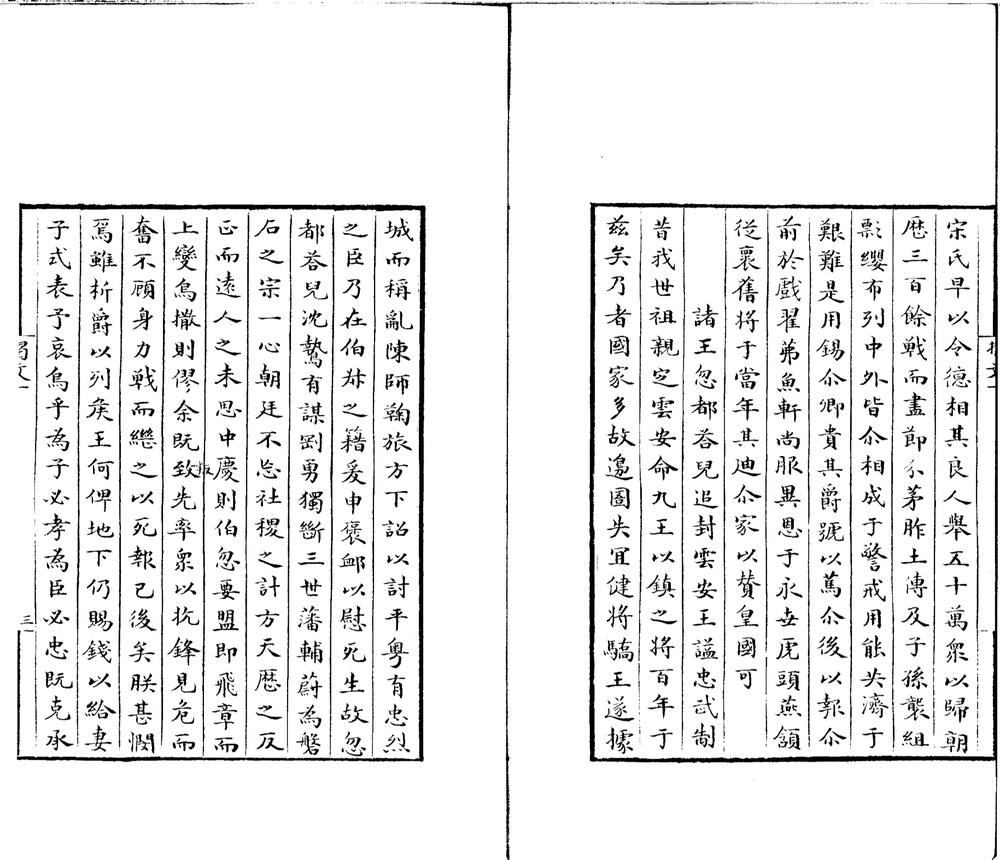 宋氏早以令德相其良人舉五十萬衆以歸朝
歷三百餘戰而盡節分茅胙土傳及子孫襲組
影纓布列中外皆尒相成于警戒用能共濟于
艱難是用錫尒卿貴其爵號以篤尒後以報尒
前於戲翟茀魚軒尚服異恩于永世虎頭燕頷
從褒舊將于當年其迪尒家以贊皇國可
諸王忽都荅兒追封雲安王諡忠武制
昔我世祖親定雲安命九王以鎮之將百年于
茲矣乃者國家多故邉圉失冝健將驕王遂據
城而稱亂陳師鞠旅方下詔以討平粤有忠烈
之臣乃在伯叔之籍爰申褒衈以慰死生故忽
都荅兒沈鷙有謀剛勇獨斷三世藩輔蔚為磐
石之宗一心朝廷不忘社稷之計方天歷之反
正而遠人之未思中慶則伯忽要盟即飛章而
上變烏撒則僇余既致先率衆以抗鋒見危而
叛
奮不顧身力戰而繼之以死報已後矣朕甚憫
焉雖析爵以列矦王何俾地下仍賜錢以給妻
子式表予哀烏乎為子必孝為臣必忠既克承
三